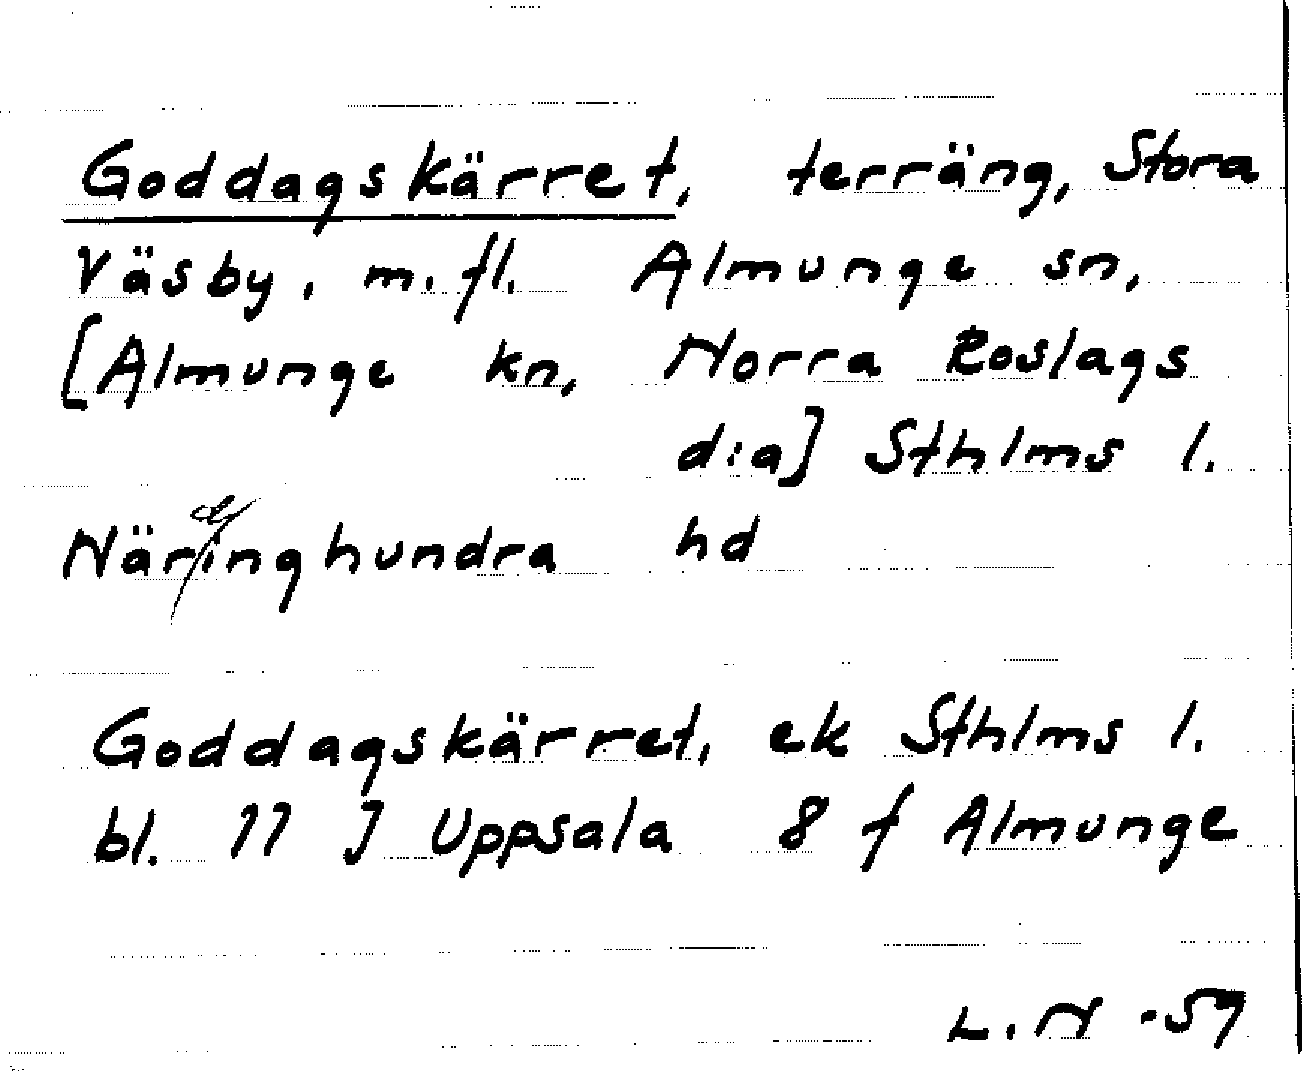 Goddagskärret, terräng, Stora
Väsby, m.fl. Almunge sn,
[Almunge kn, Norra Roslags
d:a] Sthlms l.
Näringhundra hd
Goddagskärret, ek Sthlms l.
bl. 11 J Uppsala 8 f Almunge
L.N -59